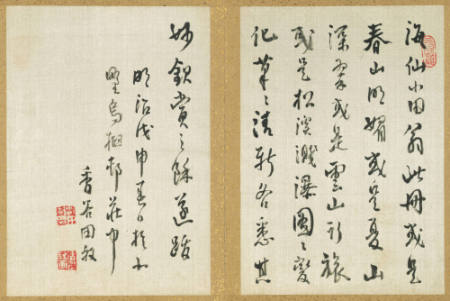 海仙小田翁此冊或是
春山明媚或是夏山
深翠或是雲山行旅
或是松溪瀑圖〻變
筆〻清新各悉其
妙欽賞之餘遂跋
明治戊申春日於小
邨莊中
香谷田叔